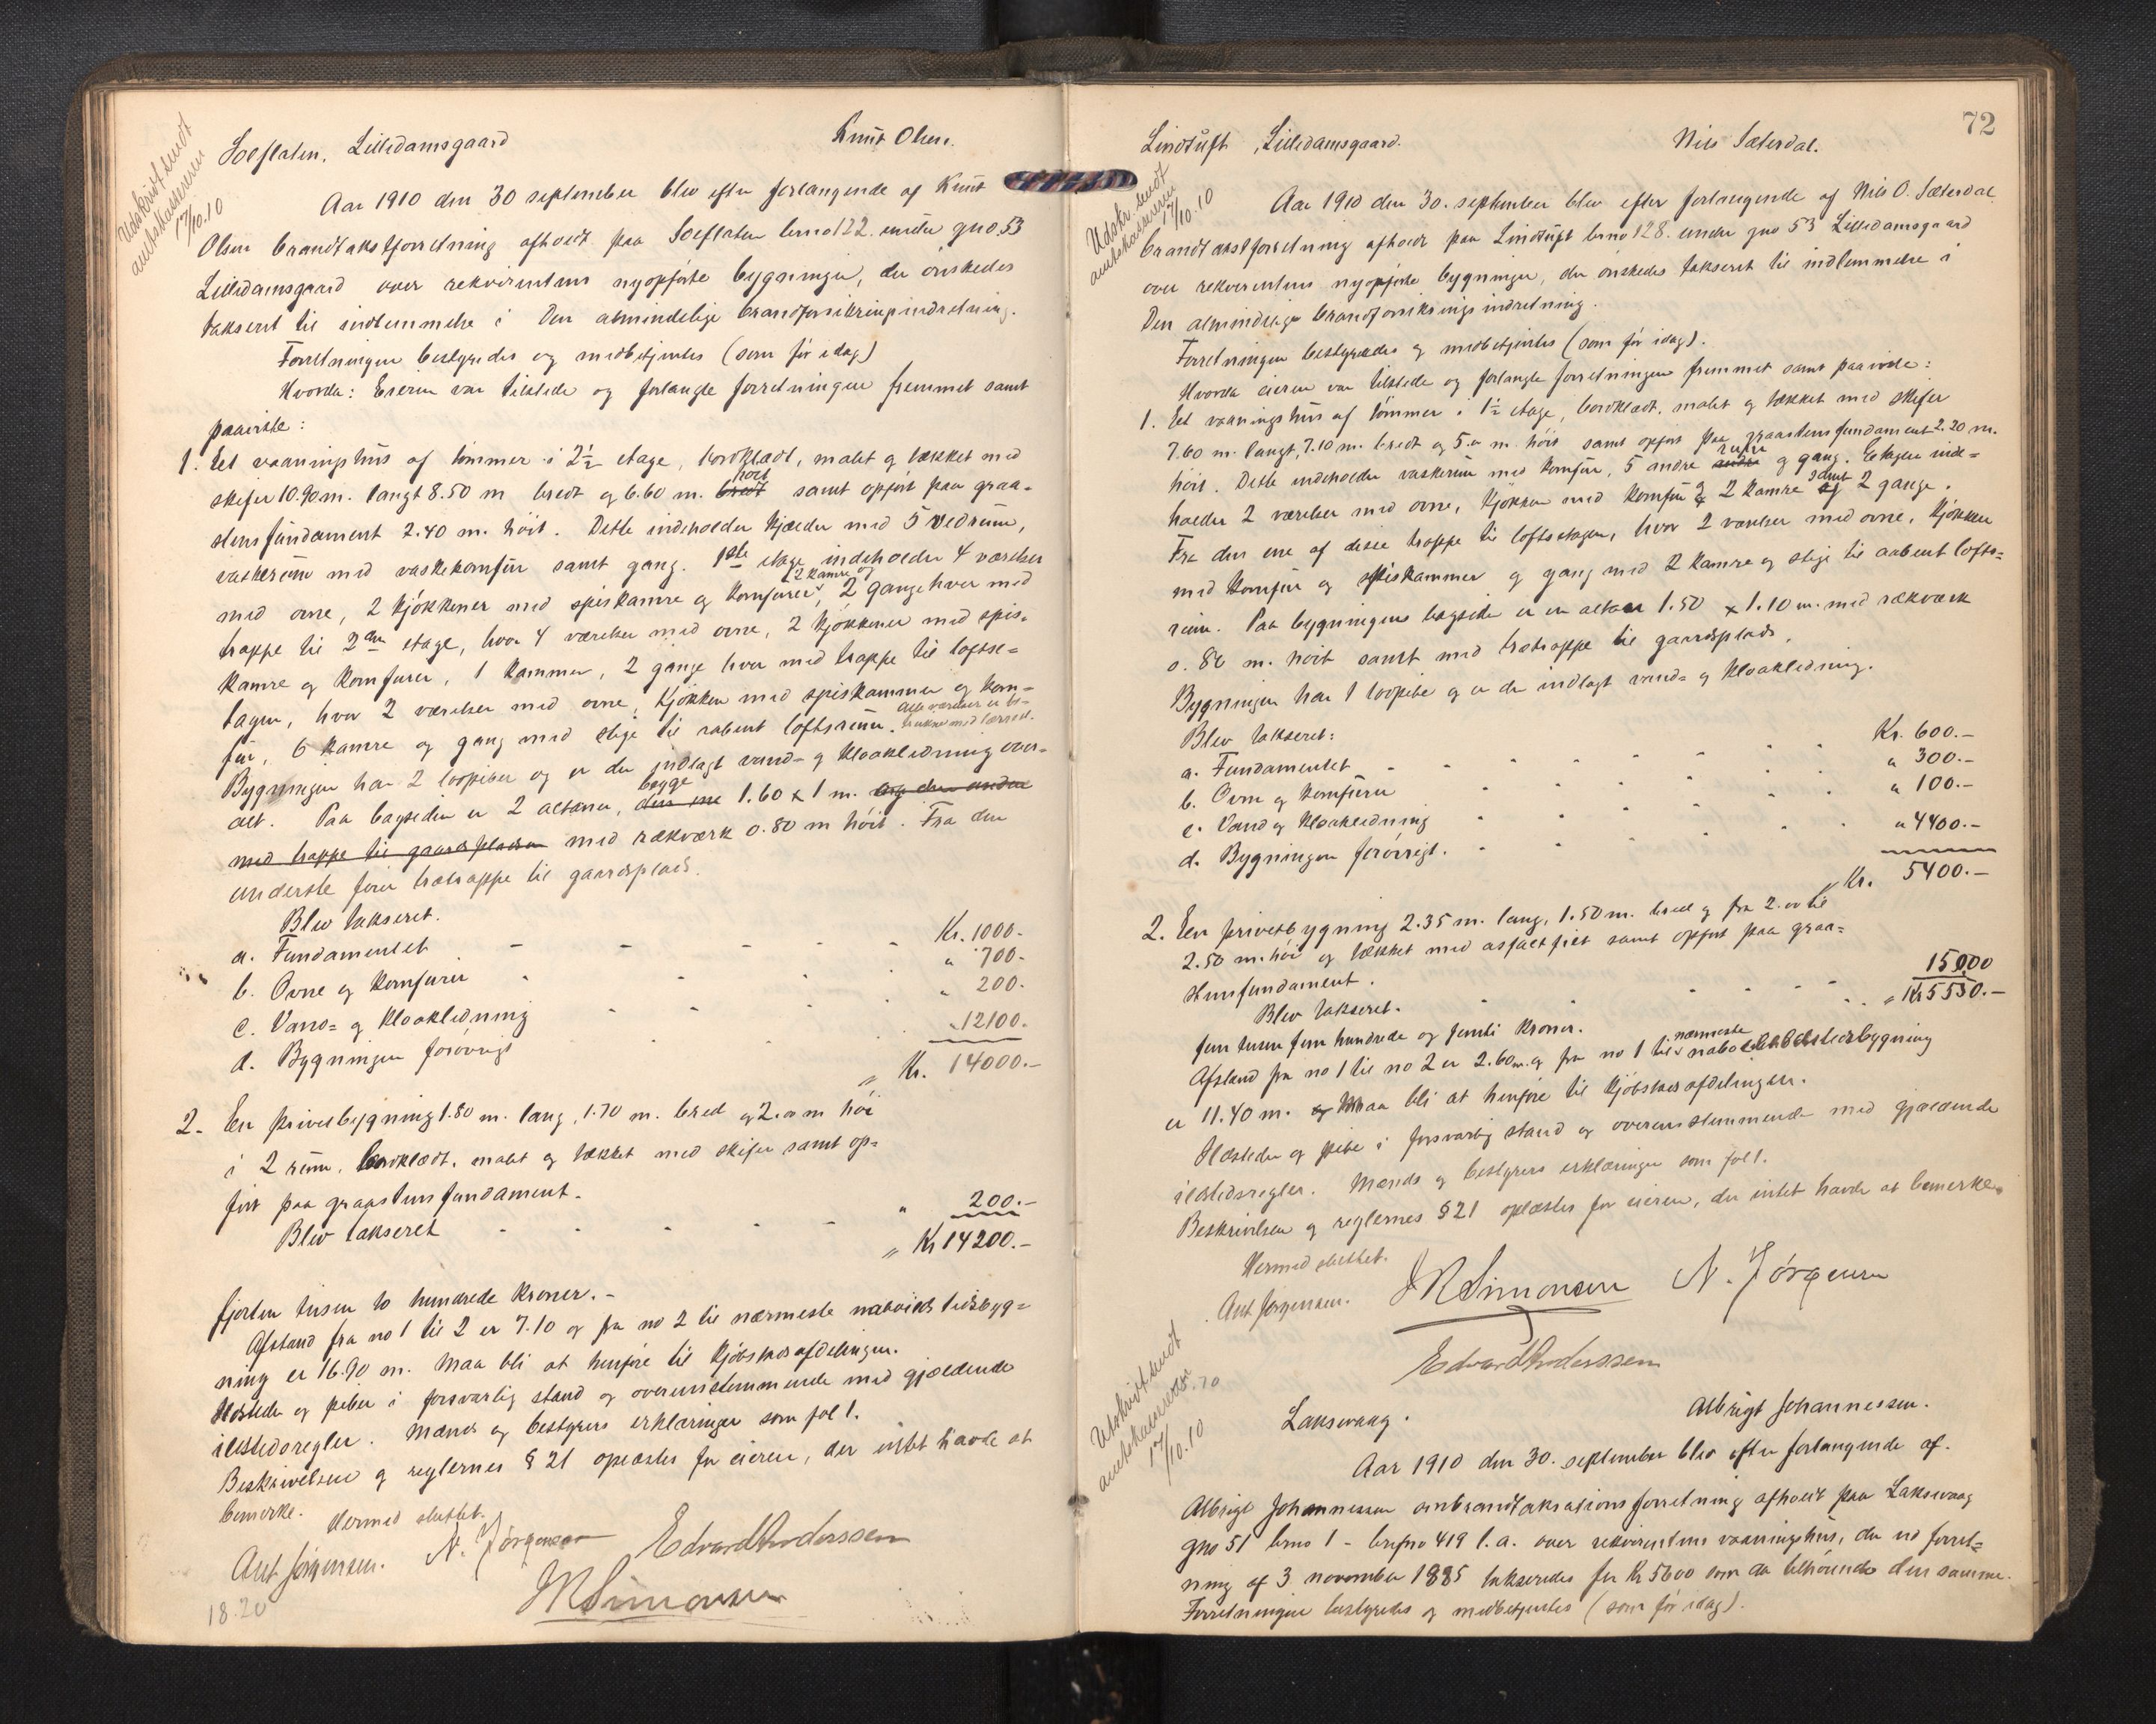 Udskrivt sendt
amtskasseren
17/10.10
Soeflaten, Lilledamsgaard Knut Olsen.
Aar 1910 den 30 september blev efter forlangende af Knut
Olsen brandtakstforretning afholdt paa Soeflaten brno 122. under gno. 53
Lilledamsgaard over rekvirentens nyopførte bygninger, der ønskedes
takseret til indlemmelse i Den almindelige brandforsikringsindretning.
Forretningen bestyredes og medbetjentes (som før idag)
Hvorda: Eieren var tilstede og forlangte forretningen fremmet samt
paaviste:
1. Et vaaningshus af tømmer i 2½ etage, bordklædt, malet og tækket med
skifer 10.90 m. langt 8.50 m bredt og 6.60 m. bredt høit samt opført paa graa-
stensfundament 2.40 m. høit. Dette indeholder kjælder med 5 vedrum,
vaskerum med vaskekomfur samt gang. 1ste etage indeholder 4 værelser
med ovne, 2 kjøkkener med spiskamre og komfurer, 2 kamre og 2 gange hver med
trappe til 2den etage, hvor 4 værelser med ovne, 2 kjøkkener med spis-
kamre og komfurer, 1 kammer, 2 gange hver med trappe til loftse-
tagen, hvor 2 værelser med ovne, kjøkken med spiskammer og kom-
fur, 6 kamre og gang med stige til aabent loftsrum. Alle værelser er be-
trukne med lærred.
Bygningen har 2 loopiber og er der indlagt vand- og kloakledning over-
alt. Paa bagsiden er 2 altaner, den ene begge 1.60 x 1 m. og den anden
med trappe til gaardspladsen med rækværk 0.80 m høit. Fra den
underste fører trætrappe til gaardsplads.
Blev takseret.
a. Fundamentet - - - - - Kr. 1000.-
b. Ovne og komfurer " 700.-
c. Vand- og kloakledning " 200.-
d. Bygningen forøvrigt " 12100.-
" Kr. 14000.-
2. En privetbygning 1.80 m. lang, 1.70 m. bred og 2.00 m høi
i 2 rum, bordklædt, malet og tækket med skifer samt op-
ført paa graastensfundament.
Blev takseret - - - - - " 200.-
" Kr 14200.-
fjorten tusen to hundrede kroner.-
Afstand fra no 1 til 2 er 7.10 og fra no 2 til nærmeste naboildstedsbyg-
ning er 16.90 m. Maa bli at henføre til kjøbstadsafdelingen.
Ildsteder og piber i forsvarlig stand og overensstemmende med gjældende
ildstedsregler. Mænds og bestyrers erklæringer som fol 1.
Beskrivelsen og reglernes § 21 oplæstes for eieren, der intet havde at
bemerke. Hermed sluttet.
Ant Jørgensen. N. Jörgensen Edvard Anderssen
M Simonsen
18.20
72
Udskr. sendt
amtskasseren
17/10.10
Lindtuft, Lilledamsgaard. Nils Sæterdal.
Aar 1910 den 30. september blev efter forlangende af Nils O. Sæterdal
brandtakstforretning afholdt paa Lindtuft brno 128. under gno 53 Lilledamsgaard
over rekvirentens nyopførte bygninger, der ønskedes takseret til indlemmelse i
Den almindelige brandforsikringsindretning.
Forretningen bestyredes og medbetjentes (som før idag).
Hvorda eieren var tilstede og forlangte forretningen fremmet samt paaviste:
1. Et vaaningshus af tømmer i 1½ etage, bordklædt, malet og tækket med skifer
7.60 m. langt, 7.10 m. bredt og 5.0 m. høit samt opført paa graastensfundament 2.20 m.
høit. Dette indeholder vaskerum med komfur, 5 andre andre rum og gang. Etagen inde-
holder 2 værelser med ovne, kjøkken med komfur & 2 kamre og samt 2 gange.
Fra den ene af disse trappe til loftsetagen, hvor 2 værelser med ovne, kjøkken
med komfur og spiskammer og gang med 2 kamre og stige til aabent lofts-
rum. Paa bygningens bagside er en altan 1.50 x 1.10 m. med rækværk
0.80 m. høit samt med trætrappe til gaardsplads.
Bygningen har 1 loopibe og er der indlagt vand- og kloakledning.
Blev takseret:
a. Fundamentet - - - - - Kr. 600.-
b. Ovne og komfurer " 300.-
c. Vand og kloakledning " 100.-
d. Bygningen forøvrigt. " 4400.-
" Kr. 5400.-
2. En privetbygning 2.35 m. lang, 1.50 m. bred og fra 2.00 til
2.50 m. høi og tækket med asfaltfilt samt opført paa graa-
stensfundament.
Blev takseret. - - - - - 15000
" Kr 5550.-
fem tusen fem hundrede og femti kroner.
Afstand fra no 1 til no 2 er 2.60 m. og fra no 1 til nærmeste naboildstedsbygning
er 11.40 m. og Maa bli at henføre til kjøbstadsafdelingen.
Ildsteder og pibe i forsvarlig stand og overensstemmende med gjældende
ildstedsregler. Mænds og bestyrers erklæringer som fol 1.
Beskrivelsen og reglernes § 21 oplæstes for eieren, der intet havde at bemerke.
Hermed sluttet.
Ant Jørgensen. M Simonsen N. Jörgensen
Edvard Anderssen
Utskrivt sendt
17/10.10
Laksevaag. Albrigt Johannessen.
Aar 1910 den 30. september blev efter forlangende af
Albrigt Johannessen ombrandtaksationsforretning afholdt paa Laksevaag
gno 51 brno 1 - brefno 419 l.a. over rekvirentens vaaningshus, der ved forret-
ning af 3 november 1885 takseredes for Kr 5600 som da tilhørende den samme.
Forretningen bestyredes og medbetjentes (som før idag).